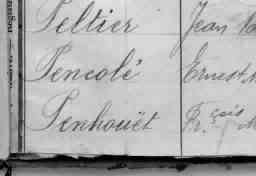 Peltier Jean
Pencolé Ernest
Penhouët Fr.çois